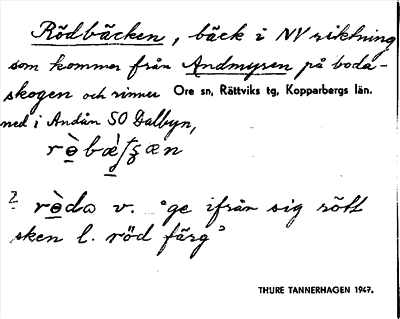 Rödbäcken, bäck i NV riktning
som kommer från Andmyren på boda-
skogen och rinner Ore sn, Rättviks tg, Kopparbergs län.
ned i Andån SO Dalbyn,
? rèda v. "ge ifrån sig rött
sken l. röd färg"
THURE TANNERHAGEN 1947.